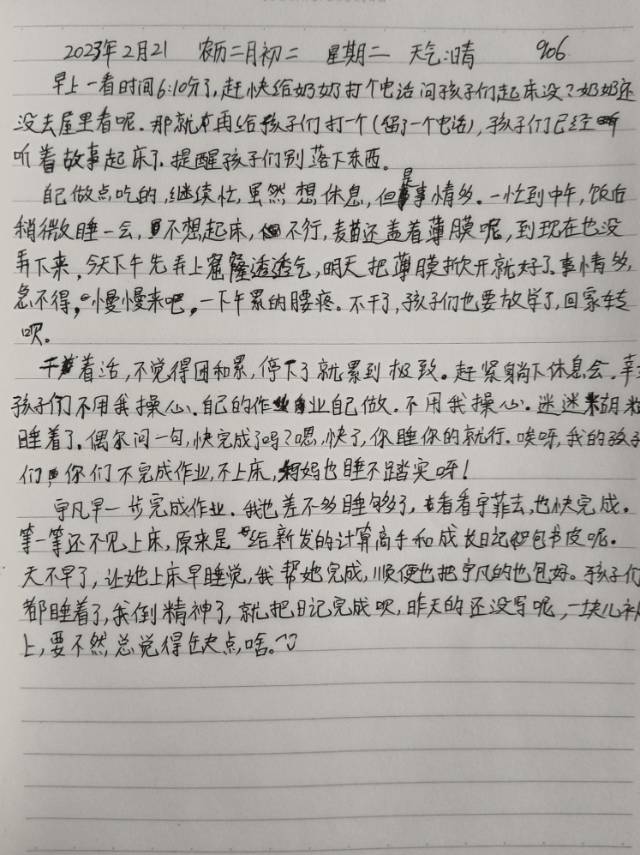 2023年2月21 农历二月初二 星期二 天气:晴 906
早上一看时间6:10分了,赶快给奶奶打个电话问孩子们起床没?奶奶还
没去屋里看呢。那就再给孩子们打一个(留了一个电话),孩子们已经
听着故事起床了。提醒孩子们别落下东西。
自己做点吃的,继续忙,虽然想休息,但是事情多。一忙到中午,饭后
稍微睡一会,不想起床,不行,麦苗还盖着薄膜呢,到现在也没
弄下来,今天下午先弄上窟窿透透气,明天把薄膜掀开就好了。事情多,
急不得,慢慢来吧,一下午累的腰疼。不干了,孩子们也要放学了,回家转
呗。
干着活,不觉得困和累,停下了就累到极致。赶紧躺下休息会。幸
孩子们不用我操心。自己的作业自己做。不用我操心。迷迷糊
睡着了。偶尔问一句,快完成了吗?嗯,快了,你睡你的就行。唉呀,我的孩子
们,你们不完成作业,不上床,妈妈也睡不踏实呀!
宇凡早一步完成作业。我也差不多睡够了,去看看宇菲去,也快完成。
等一等还不见上床,原来是给新发的计算高手和成长日记包书皮呢。
天不早了,让她上床早睡觉,我帮她完成,顺便也把宇凡的也包好。孩子们
都睡着了,我倒精神了,就把日记完成呗,昨天的还没写呢,一块儿补
上,要不然总觉得缺点啥。